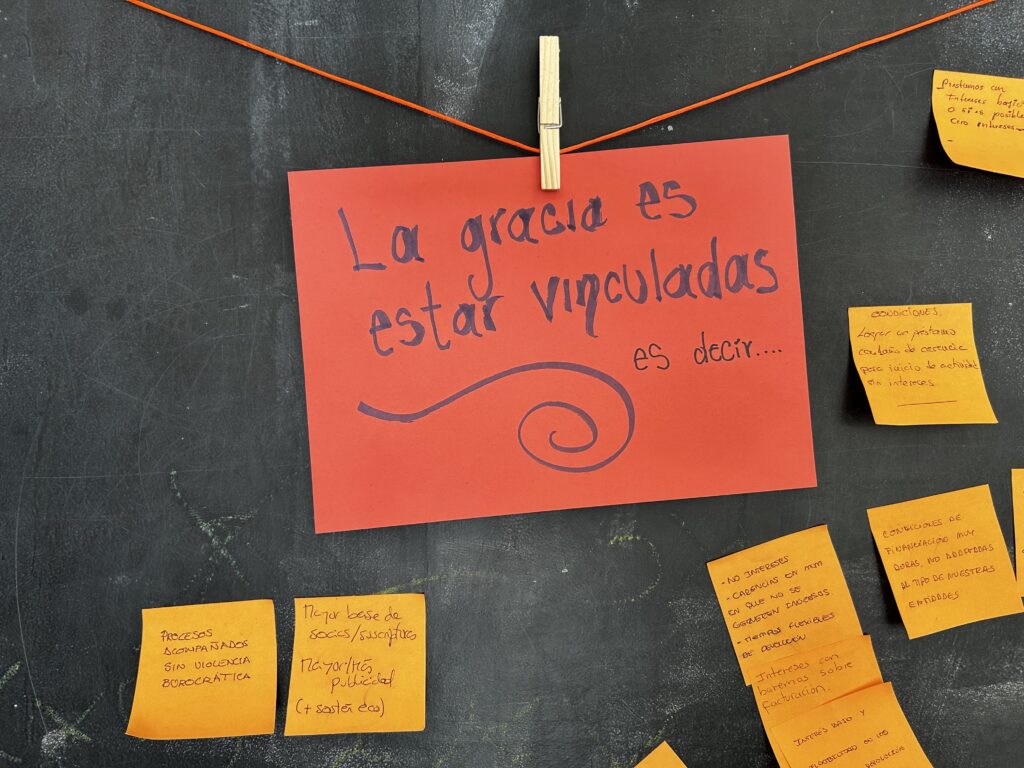 La gracia es
estar vinculadas
es decir....
Préstamos con
Intereses bajos
O si es posible
Cero intereses
CONDICIONES
Lograr un préstamo
con año de carencia
para inicio de actividad
sin intereses
CONDICIONES DE
FINANCIACIÓN MUY
DURAS, NO ADAPTADAS
AL TIPO DE NUESTRAS
ENTIDADES
- NO INTERESES
- CARENCIAS EN
EN QUE NO SE
GENEREN INGRESOS
- TIEMPOS FLEXIBLES
DE DEVOLUCIÓN
Intereses con
baremos sobre
facturación.
INTERÉS BAJO Y
FLEXIBILIDAD EN LOS
DEVOLUCIÓN
PROCESOS
ACOMPAÑADOS
SIN VIOLENCIA
BUROCRÁTICA
Mayor base de
socias/suscriptores
Mayor/Más
publicidad
(+ sostén eco)